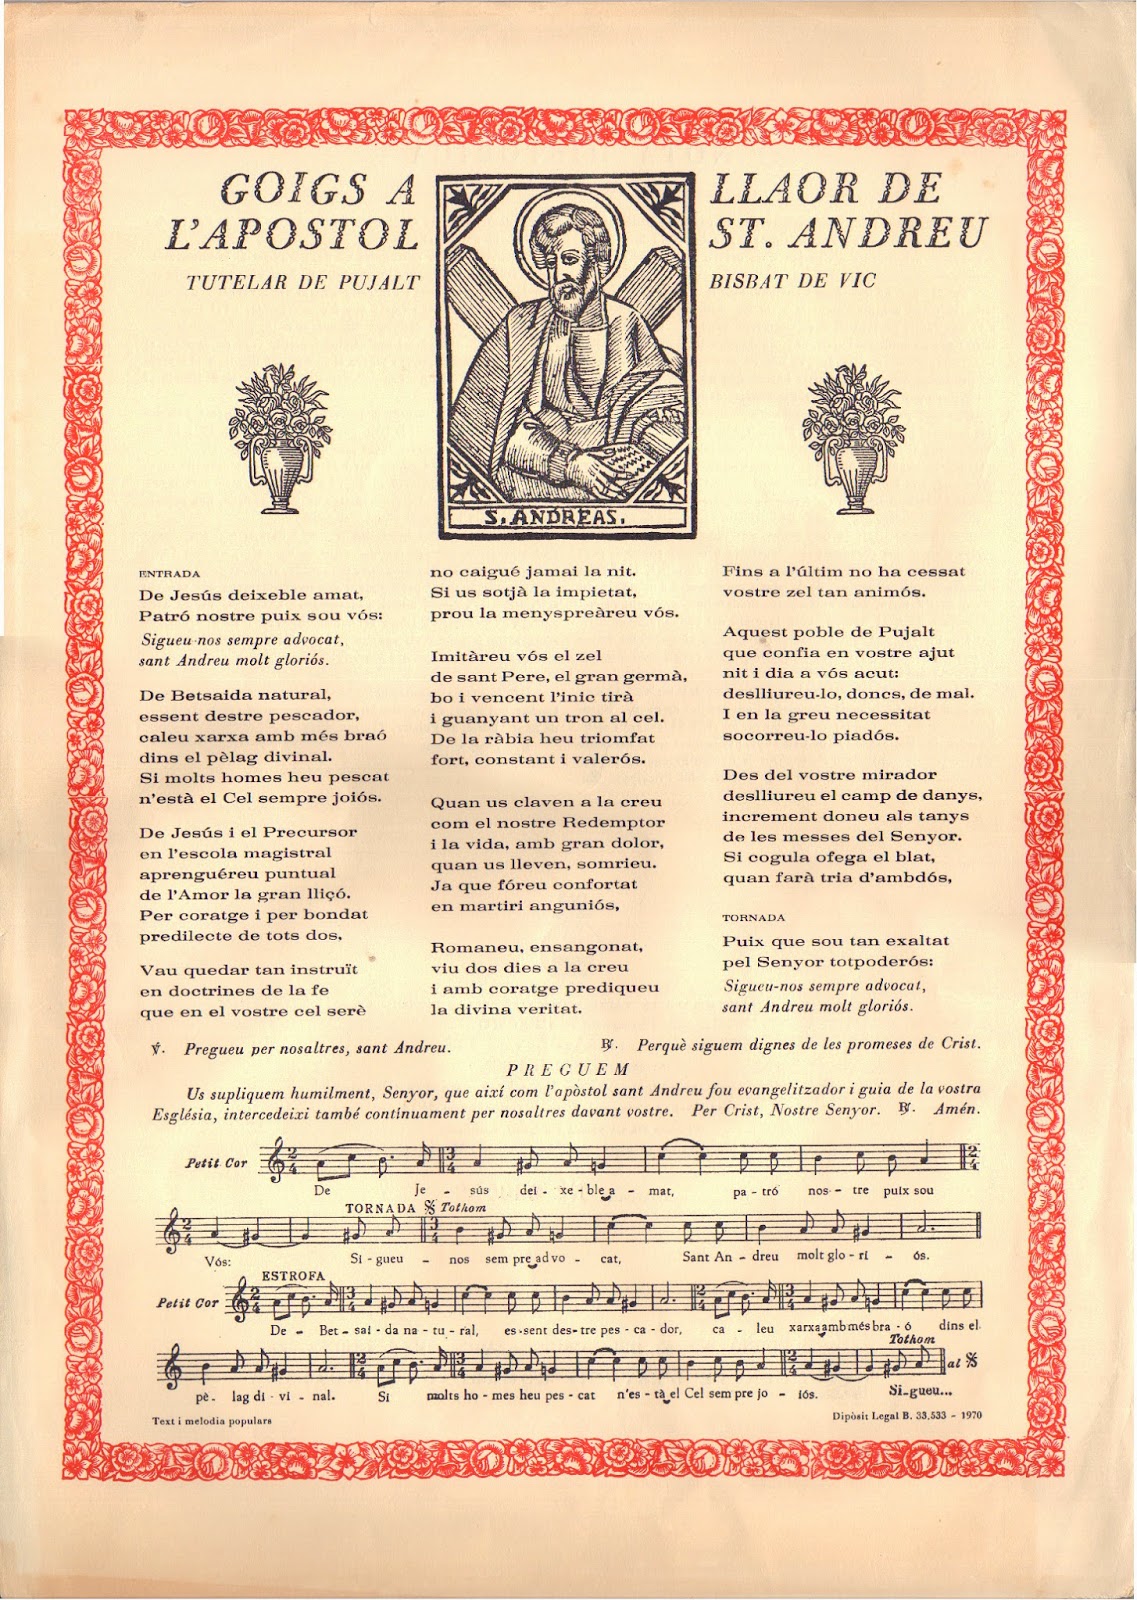 GOIGS A LLAOR DE
L'APOSTOL ST. ANDREU
TUTELAR DE PUJALT BISBAT DE VIC
S. ANDREAS.
ENTRADA
De Jesús deixeble amat,
Patró nostre puix sou vós:
Sigueu-nos sempre advocat,
sant Andreu molt gloriós.
De Betsaida natural,
essent destre pescador,
caleu xarxa amb més braó
dins el pèlag divinal.
Si molts homes heu pescat
n'està el Cel sempre joiós.
De Jesús i el Precursor
en l'escola magistral
aprenguéreu puntual
de l'Amor la gran lliçó.
Per coratge i per bondat
predilecte de tots dos.
Vau quedar tan instruït
en doctrines de la fe
que en el vostre cel serè
no caigué jamai la nit.
Si us sotjà la impietat,
prou la menyspreàreu vós.
Imitàreu vós el zel
de sant Pere, el gran germà,
bo i vencent l'inic tirà
i guanyant un tron al cel.
De la ràbia heu triomfat
fort, constant i valerós.
Quan us claven a la creu
com el nostre Redemptor
i la vida, amb gran dolor,
quan us lleven, somrieu.
Ja que fóreu confortat
en martiri anguniós,
Romaneu, ensangonat,
viu dos dies a la creu
i amb coratge prediqueu
la divina veritat.
Fins a l'últim no ha cessat
vostre zel tan animós.
Aquest poble de Pujalt
que confia en vostre ajut
nit i dia a vós acut:
deslliureu-lo, doncs, de mal.
I en la greu necessitat
socorreu-lo piadós.
Des del vostre mirador
deslliureu el camp de danys,
increment doneu als tanys
de les messes del Senyor.
Si cogula ofega el blat,
quan farà tria d'ambdós,
TORNADA
Puix que sou tan exaltat
pel Senyor totpoderós:
Sigueu-nos sempre advocat,
sant Andreu molt gloriós.
℣. Pregueu per nosaltres, sant Andreu. ℟. Perquè siguem dignes de les promeses de Crist.
PREGUEM
Us supliquem humilment, Senyor, que així com l'apòstol sant Andreu fou evangelitzador i guia de la vostra
Església, intercedeixi també contínuament per nosaltres davant vostre. Per Crist, Nostre Senyor. ℟. Amén.
Petit Cor
De Je - sús dei - xe - ble a - mat, pa - tró nos - tre puix sou
TORNADA Tothom
Vós: Si - gueu - nos sem pre ad vo - cat, Sant An - dreu molt glo - ri - ós.
ESTROFA
Petit Cor
De - Bet - sai - da na - tu - ral, es - sent des - tre pes - ca - dor, ca - leu xarxa amb més bra - ó dins el
Tothom
al
pè - lag di - vi - nal. Si molts ho - mes heu pes - cat n'es - tà el Cel sem pre jo - iós. Si - gueu...
Text i melodia populars Dipòsit Legal B. 33,533 - 1970